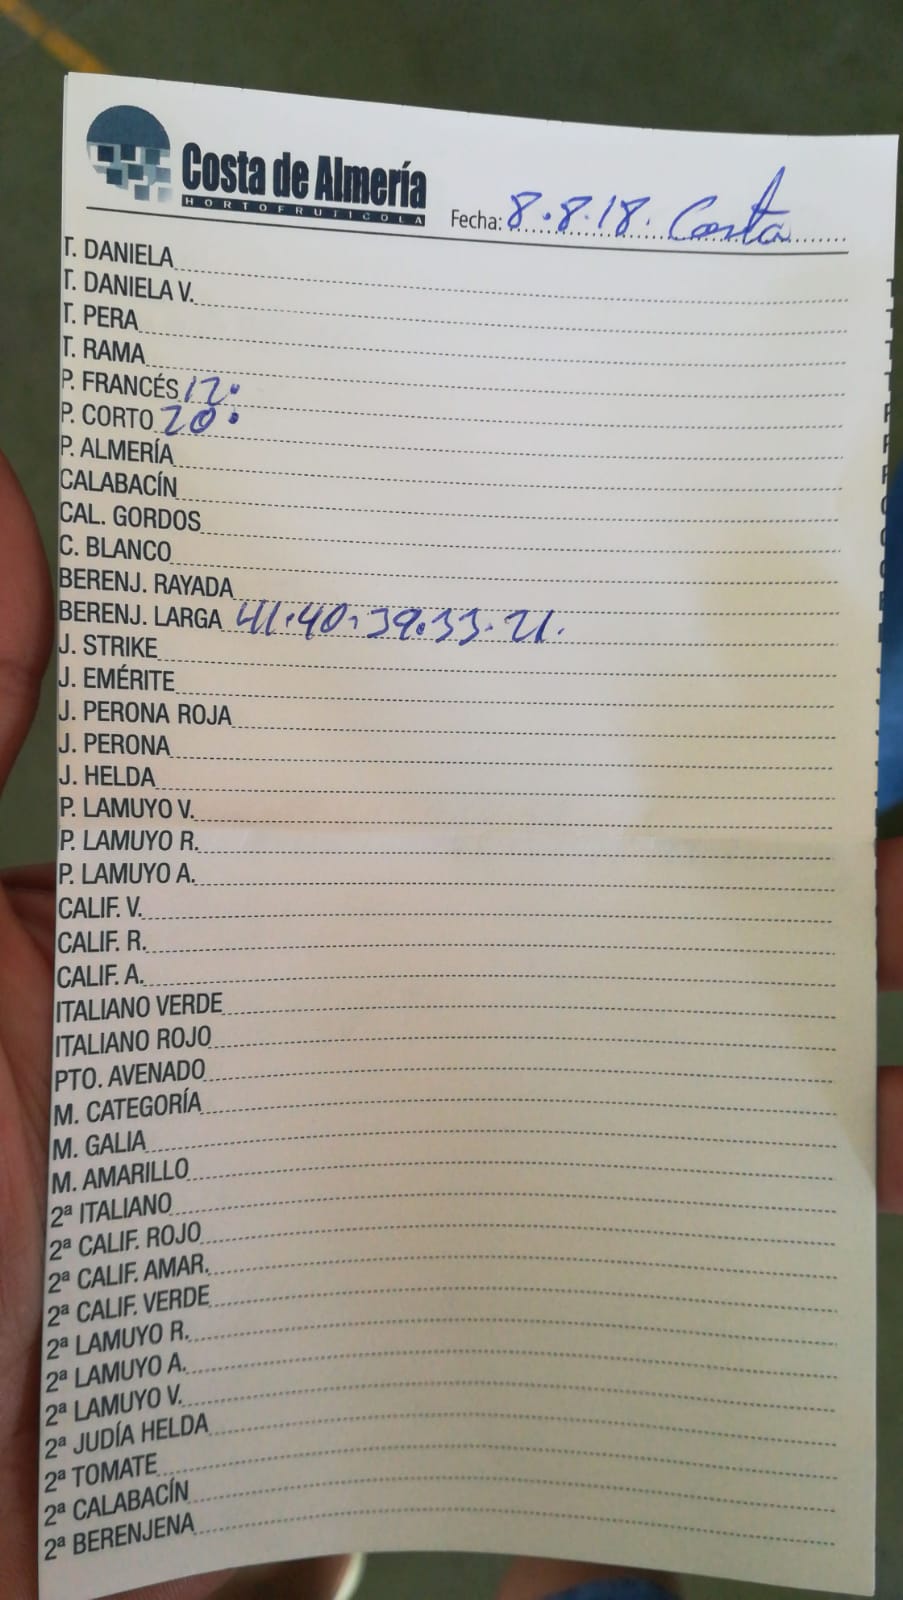 Costa de Almería
HORTOFRUTÍCOLA
Fecha: 8.8.18. Costa
T. DANIELA
T. DANIELA V.
T. PERA
T. RAMA
P. FRANCÉS 12.
P. CORTO 20.
P. ALMERÍA
CALABACÍN
CAL. GORDOS
C. BLANCO
BERENJ. RAYADA
BERENJ. LARGA 41.40.39.33.21.
J. STRIKE
J. EMÉRITE
J. PERONA ROJA
J. PERONA
J. HELDA
P. LAMUYO V.
P. LAMUYO R.
P. LAMUYO A.
CALIF. V.
CALIF. R.
CALIF. A.
ITALIANO VERDE
ITALIANO ROJO
PTO. AVENADO
M. CATEGORÍA
M. GALIA
M. AMARILLO
2ª ITALIANO
2ª CALIF. ROJO
2ª CALIF. AMAR.
2ª CALIF. VERDE
2ª LAMUYO R.
2ª LAMUYO A.
2ª LAMUYO V.
2ª JUDÍA HELDA
2ª TOMATE
2ª CALABACÍN
2ª BERENJENA